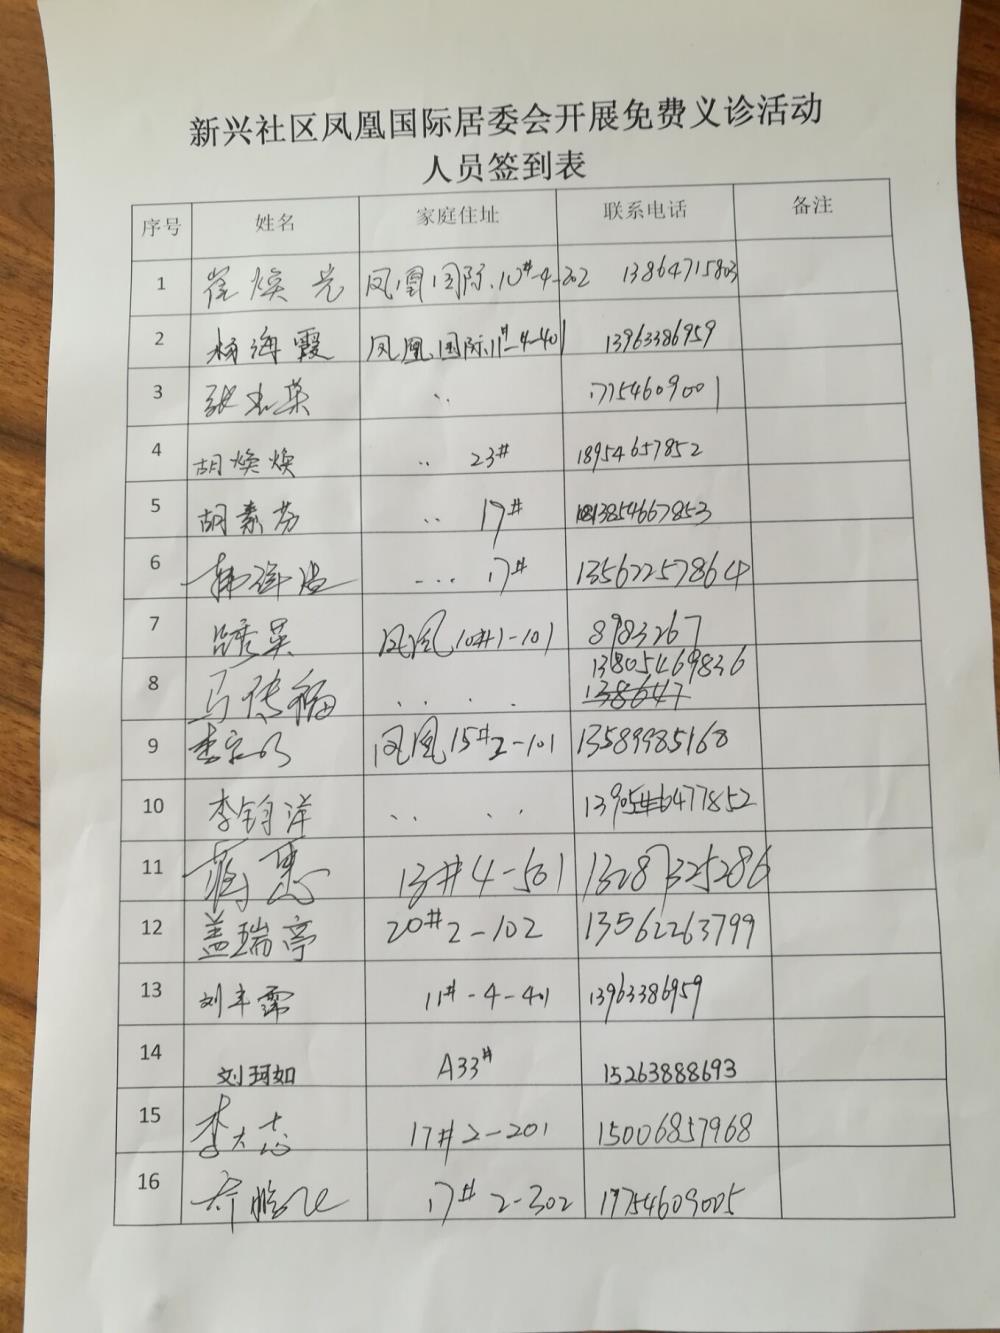 新兴社区凤凰国际居委会开展免费义诊活动
人员签到表
序号 姓名 家庭住址 联系电话 备注
1 崔焕光 凤凰国际.10#-4-302 13864715803
2 杨海霞 凤凰国际.11#-4-401 13963386959
3 张 荣 ·· 17154609001
4 胡焕焕 ·· 23# 18954657852
5 胡素芬 ·· 17# 13854667853
6 韩 ··· 17# 13562257864
7 路英 凤凰10#1-101 8983267
8 马传福 · · · · 13805469836
138647
9 李宝 凤凰15#2-101 13589985168
10 李钧洋 ·· ·· 6477852
11 蒋惠 13#4-501 13287325286
12 盖瑞亭 20#2-102 13562263799
13 刘丰霈 11#-4-401 13963386959
14 刘珂如 A33# 15263888693
15 李大志 17#2-201 15006857968
16 乔鹏飞 17#2-302 19754609005